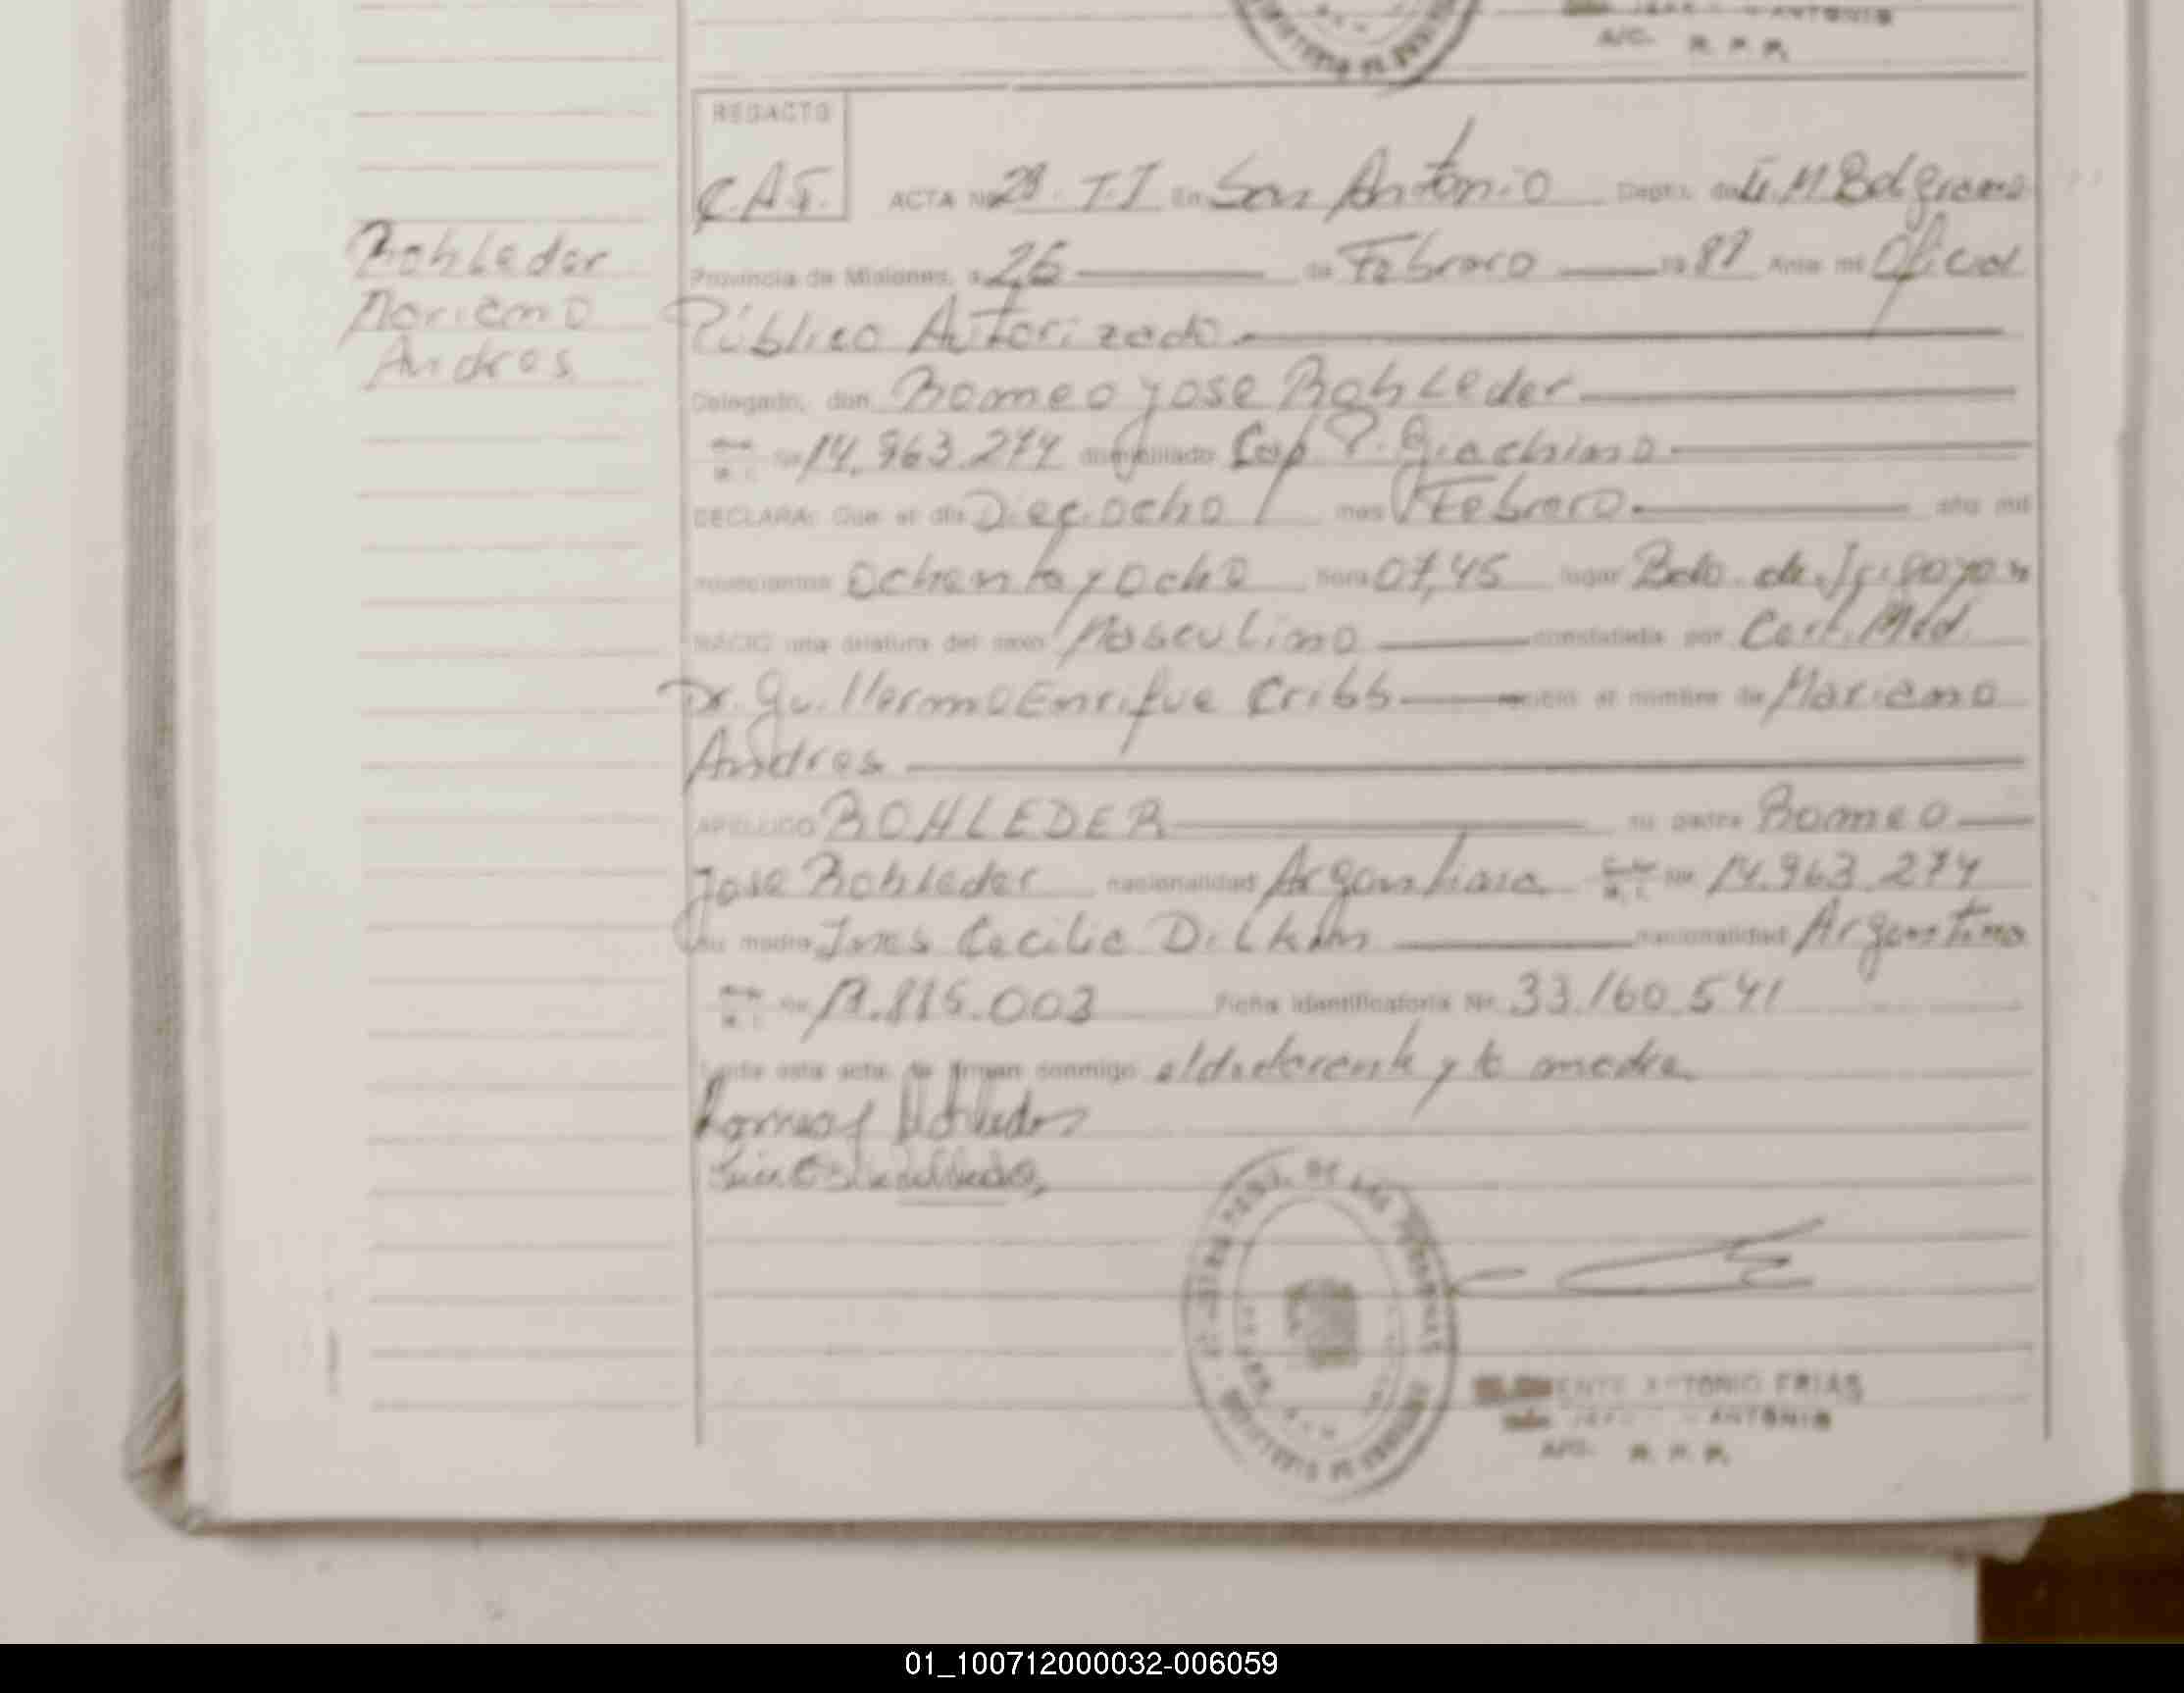 ANTONIO
A/C. R. P. P.
REDACTO
C.A.F.
ACTA Nº 29 - T.I En San Antonio Depto. de G. M Belgrano
Provincia de Misiones, a 26 de Febrero 19 88 Ante mi Oficial
Público Autorizado
Delegado, don Romeo Jose Rohleder
Nº 14.963.274 domiciliado Cap P. Giachino
DECLARA: Que el día Dieciocho mes Febrero año mil
novecientos ochenta y ocho hora 07,45 lugar Bdo. de Irigoyen
NACIO una criatura del sexo Masculino constatada por Cert. Méd.
Dr. Guillermo Enrique Cribb recibió el nombre de Mariano
Andres
APELLIDO ROHLEDER su padre Romeo
Jose Rohleder nacionalidad Argentina M. I. Nº 14.963.274
su madre Ines Cecilia Dilkin nacionalidad Argentina
M. I. Nº 003 Ficha identificatoria Nº 33.160.541
Leída esta acta, la firman conmigo el declarante y la madre
Rohleder
Mariano
Andres
DE LAS PERSONAS
ENTE ANTONIO FRIAS
ANTONIO
R. P. P.
01_100712000032-006059